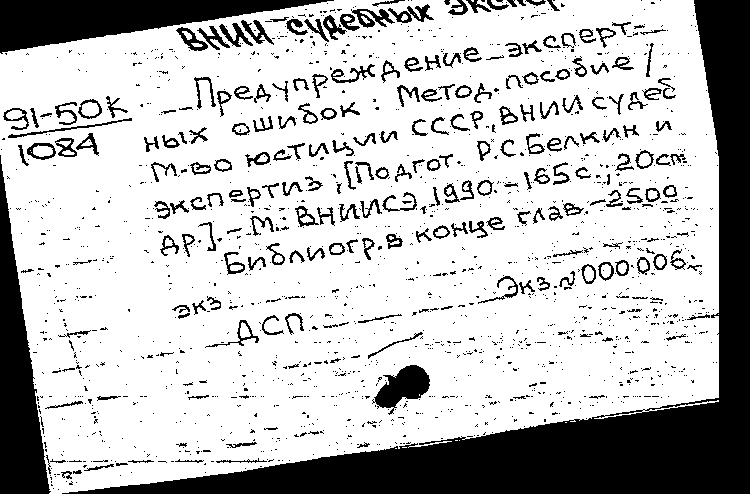 ВНИИ судебных экспер
91-50к
1084
Предупреждение эксперт-
ных ошибок : Метод. пособие /
М-во юстиции СССР, ВНИИ судеб
экспертиз ; [Подгот. Р.С.Белкин и
др.]. - М.: ВНИИСЭ, 1990. - 165 с.; 20 cm
Библиогр. в конце глав. - 2500
экз
ДСП.
Экз. № 000006.